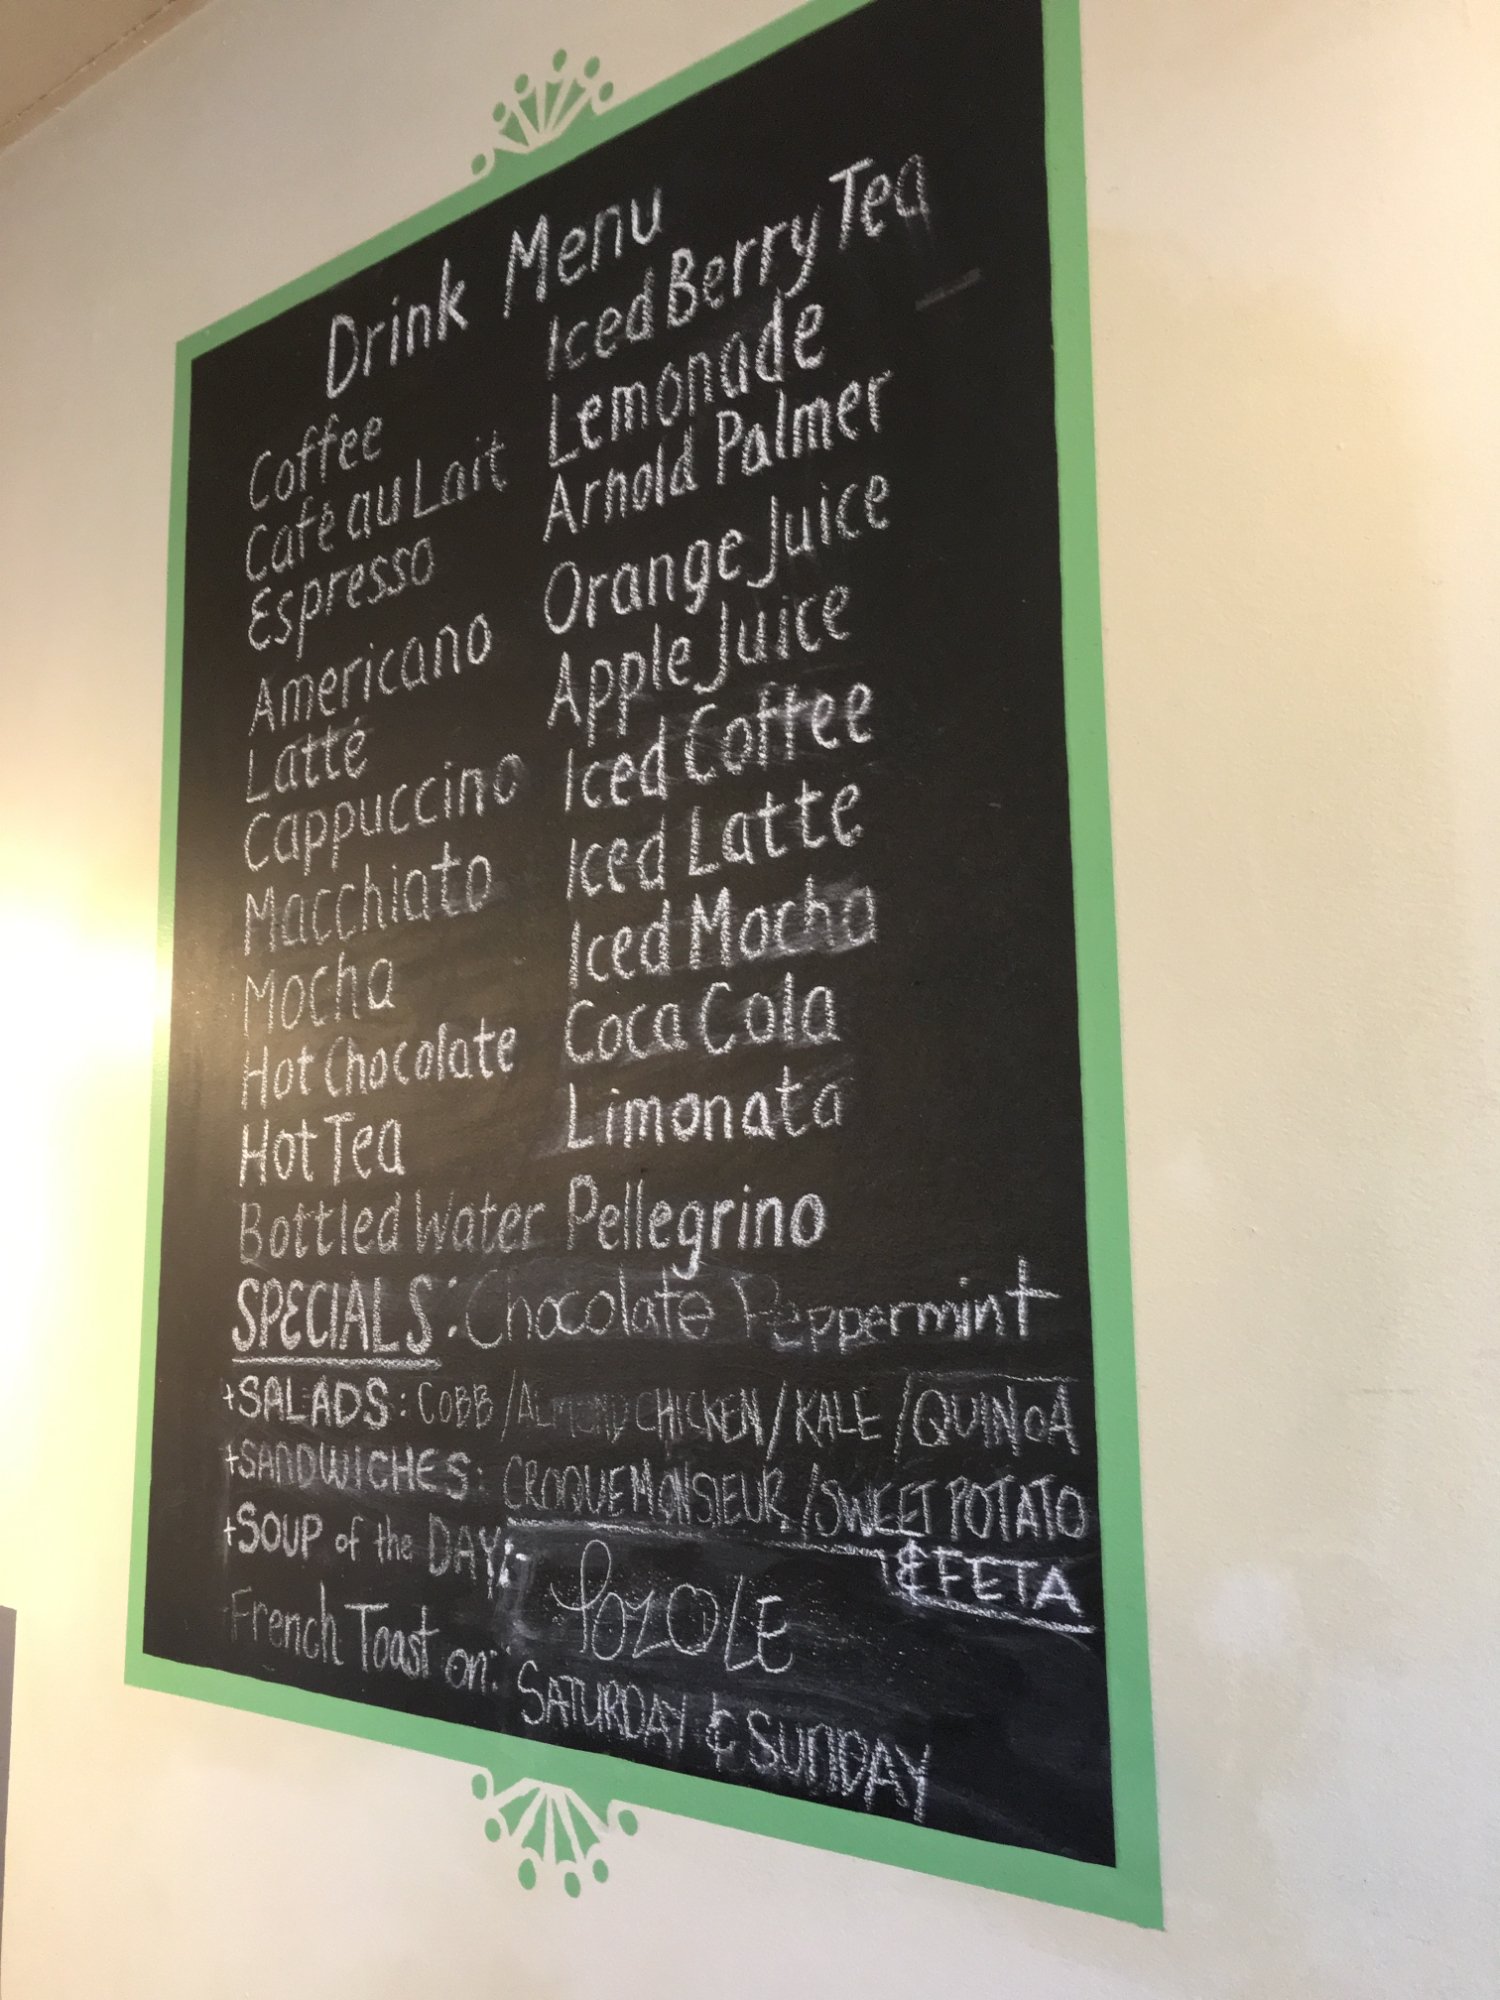 Drink Menu
Coffee
Café au Lait
Espresso
Americano
Latté
Cappuccino
Macchiato
Mocha
Hot Chocolate
Hot Tea
Bottled Water
Iced Berry Tea
Lemonade
Arnold Palmer
Orange Juice
Apple Juice
Iced Coffee
Iced Latte
Iced Mocha
Coca Cola
Limonata
Pellegrino
SPECIALS: Chocolate Peppermint
+SALADS: COBB / ALMOND CHICKEN / KALE / QUINOA
+SANDWICHES: CROQUE MONSIEUR / SWEET POTATO
& FETA
+SOUP of the DAY: POZOLE
French Toast on: SATURDAY & SUNDAY